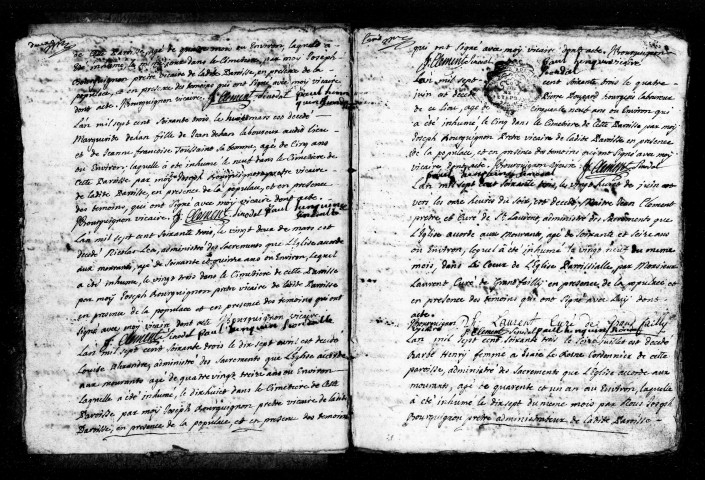 de cette Parroisse, agé de quatre mois en Environ, laquelle a
été inhumé le dans le Cimetiere, par moy Joseph
Bourguignon pretre vicaire de ladite Parroisse, en presence de la
populace, et en presence des temoins qui ont signé avec moy vicaire
dont acte. Bourguignon vicaire. f Clement Sindal paul
Lan mil sept cent soixante trois, le huit mars est decedé
Marguerite dehan fille de Jean dehan laboureur audit lieu
et de Jeanne françoise Toussaint sa femme, agé de Cinq ans
en Environ, laquelle à eté inhumé le neuf dans le Cimetiere de
Cette Parroisse par moy Joseph Bourguignon pretre vicaire
de ladite Parroisse, en presence de la populace, et en presence
des temoins, qui ont signé avec moy vicaire dont acte.
Bourguignon vicaire. f Clement Sindal Paul Junguin
Lan mil sept cent soixante trois, le vingt deux de mars est
decedé Nicolas Lea, administré des Sacrements que L'Eglise accorde
aux mourants, agé de soixante et quinze ans en Environ, lequel
a été inhumé, le vingt trois dans le Cimetiere de cette Parroisse
par moy Joseph Bourguignon pretre vicaire de ladite Parroisse
en presence de la populace et en presence des temoins qui ont
signé avec moy vicaire dont acte Bourguignon vicaire
f Clement Sindal Paul Junguin
Lan mil sept cent soixante trois le dix sept avril est decedé
Louise administré des Sacrements que L'Eglise accorde
aux mourants agé de quatre vingt treize ans en Environ
laquelle a été inhumé, le dixhuict dans le Cimetiere de Cette
Parroisse par moy Joseph Bourguignon pretre vicaire de ladite
Parroisse, en presence de la populace, et en presence des temoins
qui ont signé avec moy vicaire dont acte. Bourguignon
f Clement Sindal Paul Junguin
Lan mil sept cent soixante trois le quatre
juin est decedé laboureur
de ce lieu, agé de cinquante neuf ans en Environ qui
a été inhumé le Cinq dans le Cimetiere de cette Parroisse par moy
Joseph Bourguignon Pretre vicaire de ladite Parroisse en presence
de la populace, et en presence des temoins qui ont signé avec moy
vicaire dont acte. Bourguignon vicaire f Clement Sindal
paul Junguin
Lan mil sept cent soixante trois, le vingt huict de juin
vers les onze heures du soir, est decedé Maitre Jean Clement
pretre, et Curé de St Laurent, administré des Sacrements que
L'Eglise accorde aux Mourants, agé de soixante et seize ans
en Environ, lequel à été inhumé le vingt neuf du meme
mois, dans le Cœur de L'Eglise Parrissialle, par Monsieur
Laurent Curé de Grandfailly en presence de la populace et
en presence des temoins qui ont signé avec Luy dont
acte.
Bourguignon J. Laurent Curé de Grand failly
f Clement Sindal paul Junguin
Lan mil sept cent soixante trois le seize juillet est decedé
barbe Henry femme a Cordonnier de cette
parroisse, administré des Sacrements que L'Eglise accorde aux
mourants, agé de quarente et un an en Environ, laquelle
à été inhumé le dix sept du meme mois par Nous Joseph
Bourguignon pretre administrateur de ladite Parroisse